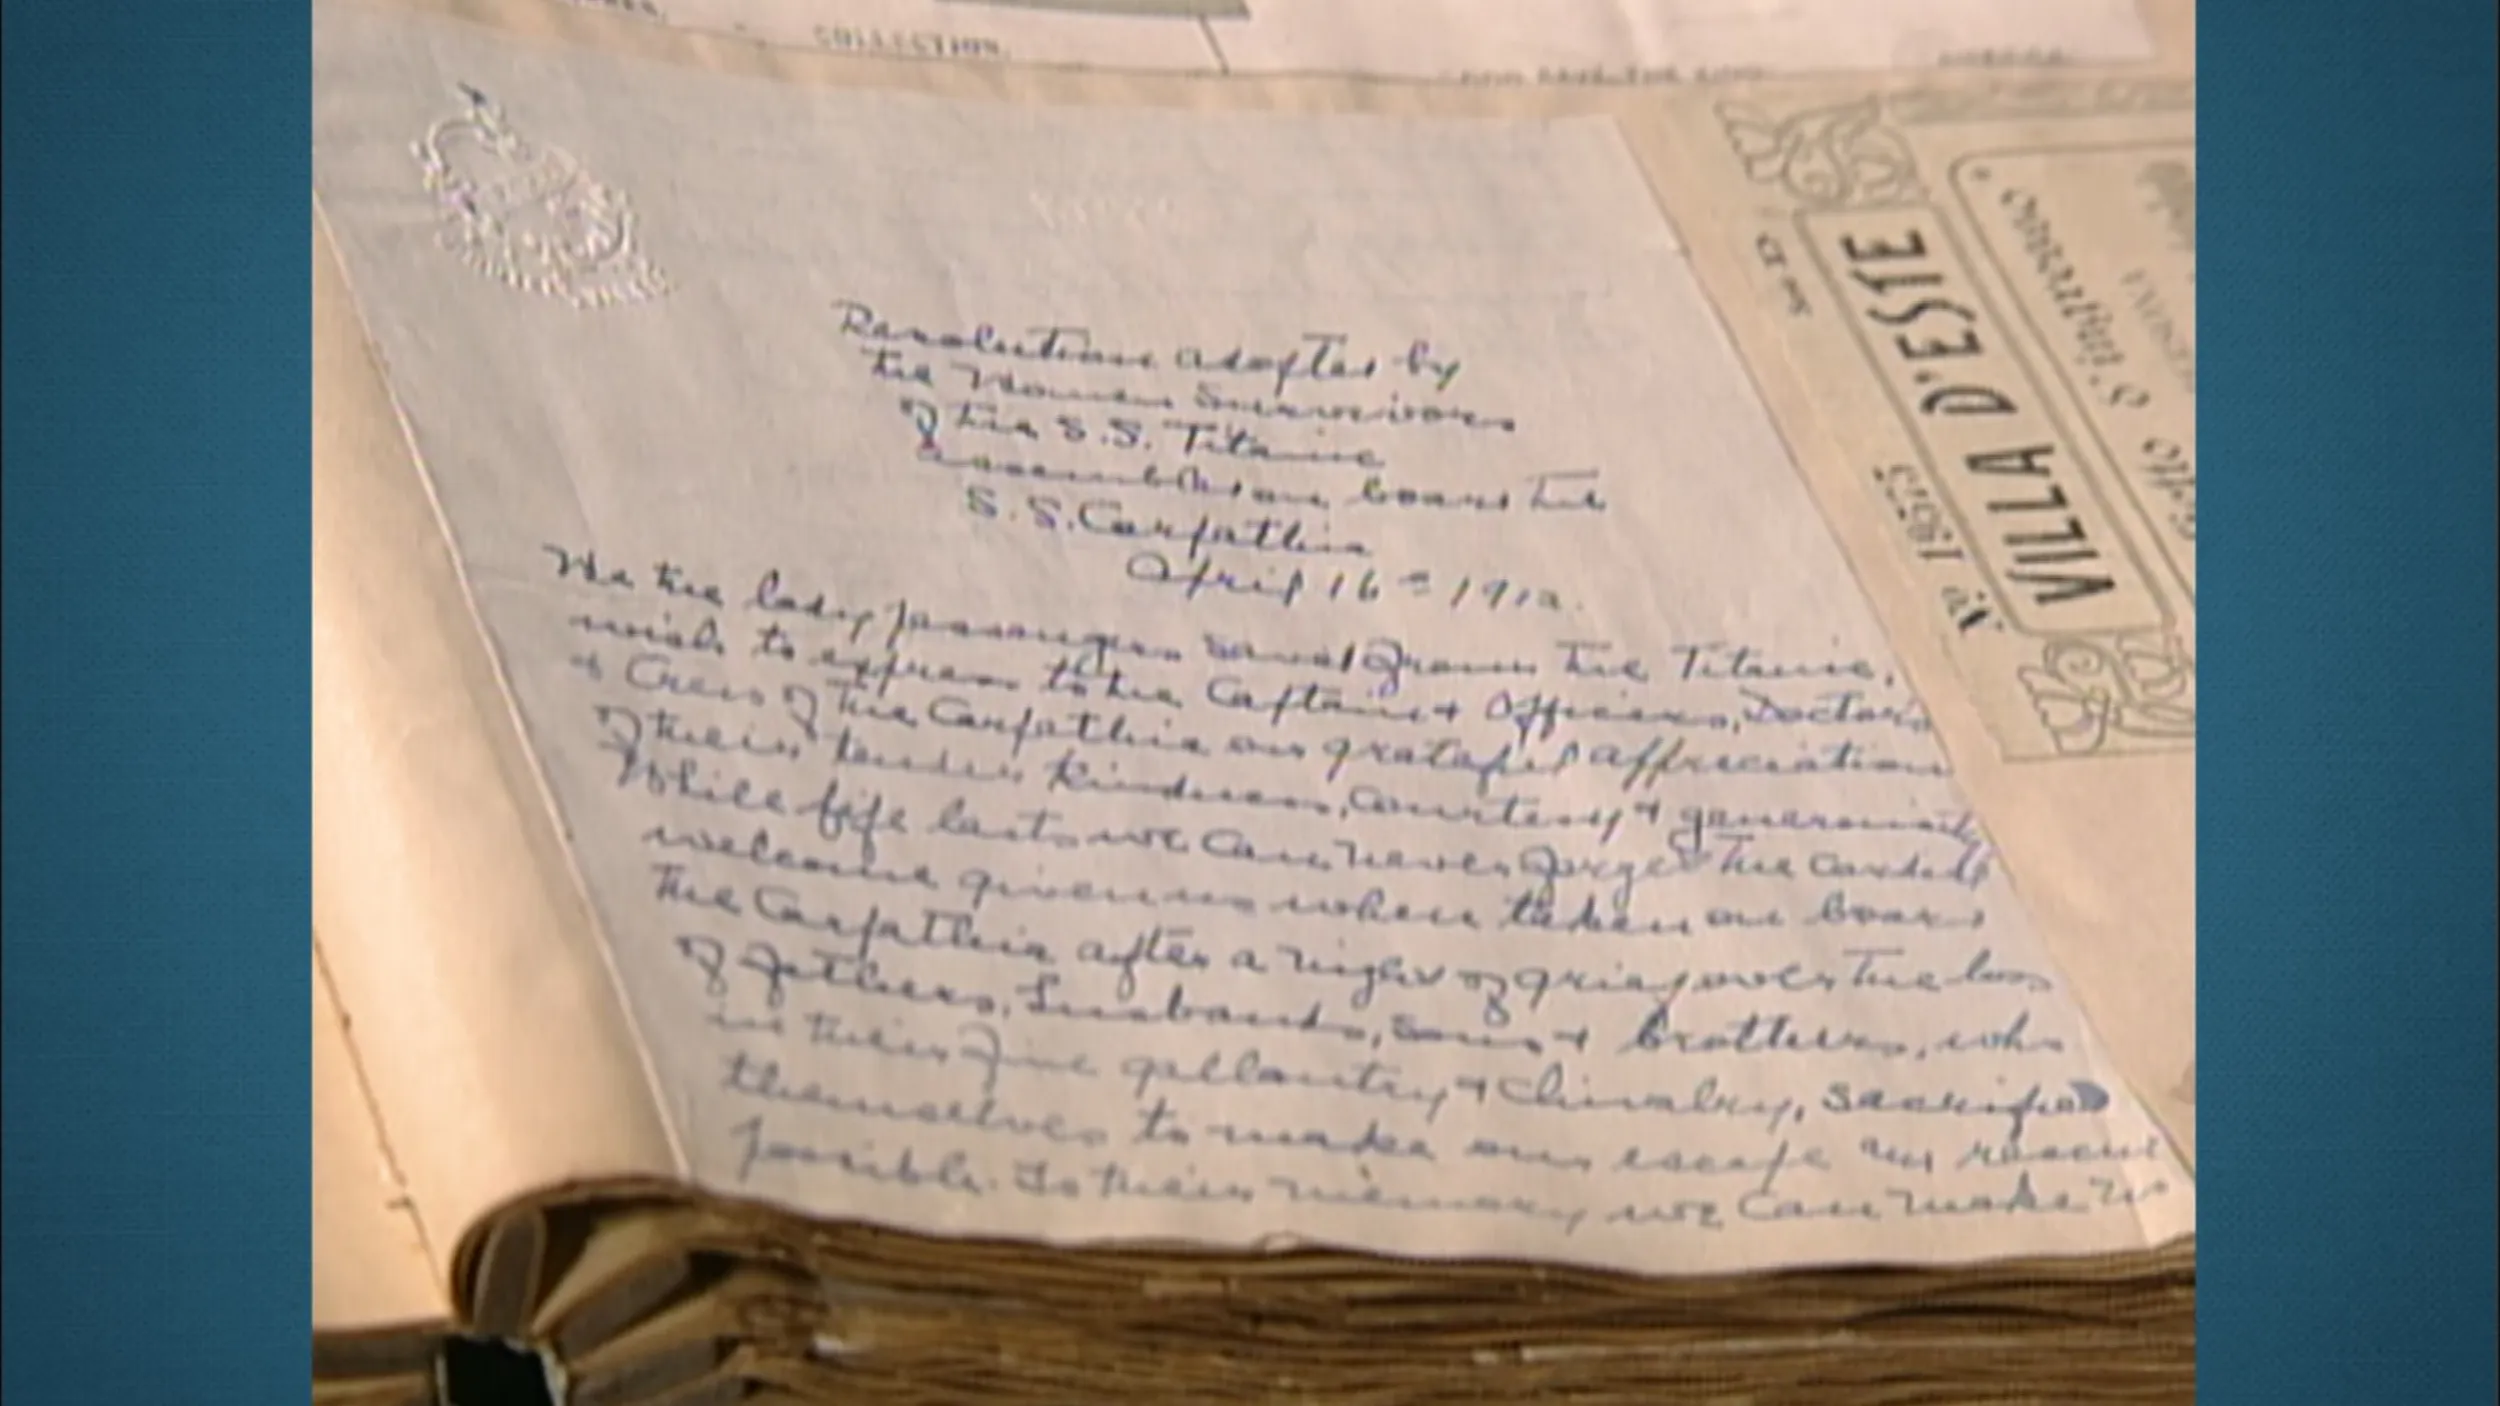 COLLECTION
Resolution adopted by
the Women Survivors
of the S.S. Titanic
assembled on board the
S.S. Carpathia
April 16th 1912.
We the lady passengers saved from the Titanic,
wish to express to the Captain & Officers, Doctors
& Crew of the Carpathia our grateful appreciation
of their tender kindness, courtesy & generosity
While life lasts we can never forget the cordial
welcome given us when taken on board
the Carpathia after a night of grief over the loss
of fathers, husbands, sons & brothers, who
in their fine gallantry & chivalry, sacrificed
themselves to make our escape and rescue
possible. To their memory we can make no
VILLA D'ESTE